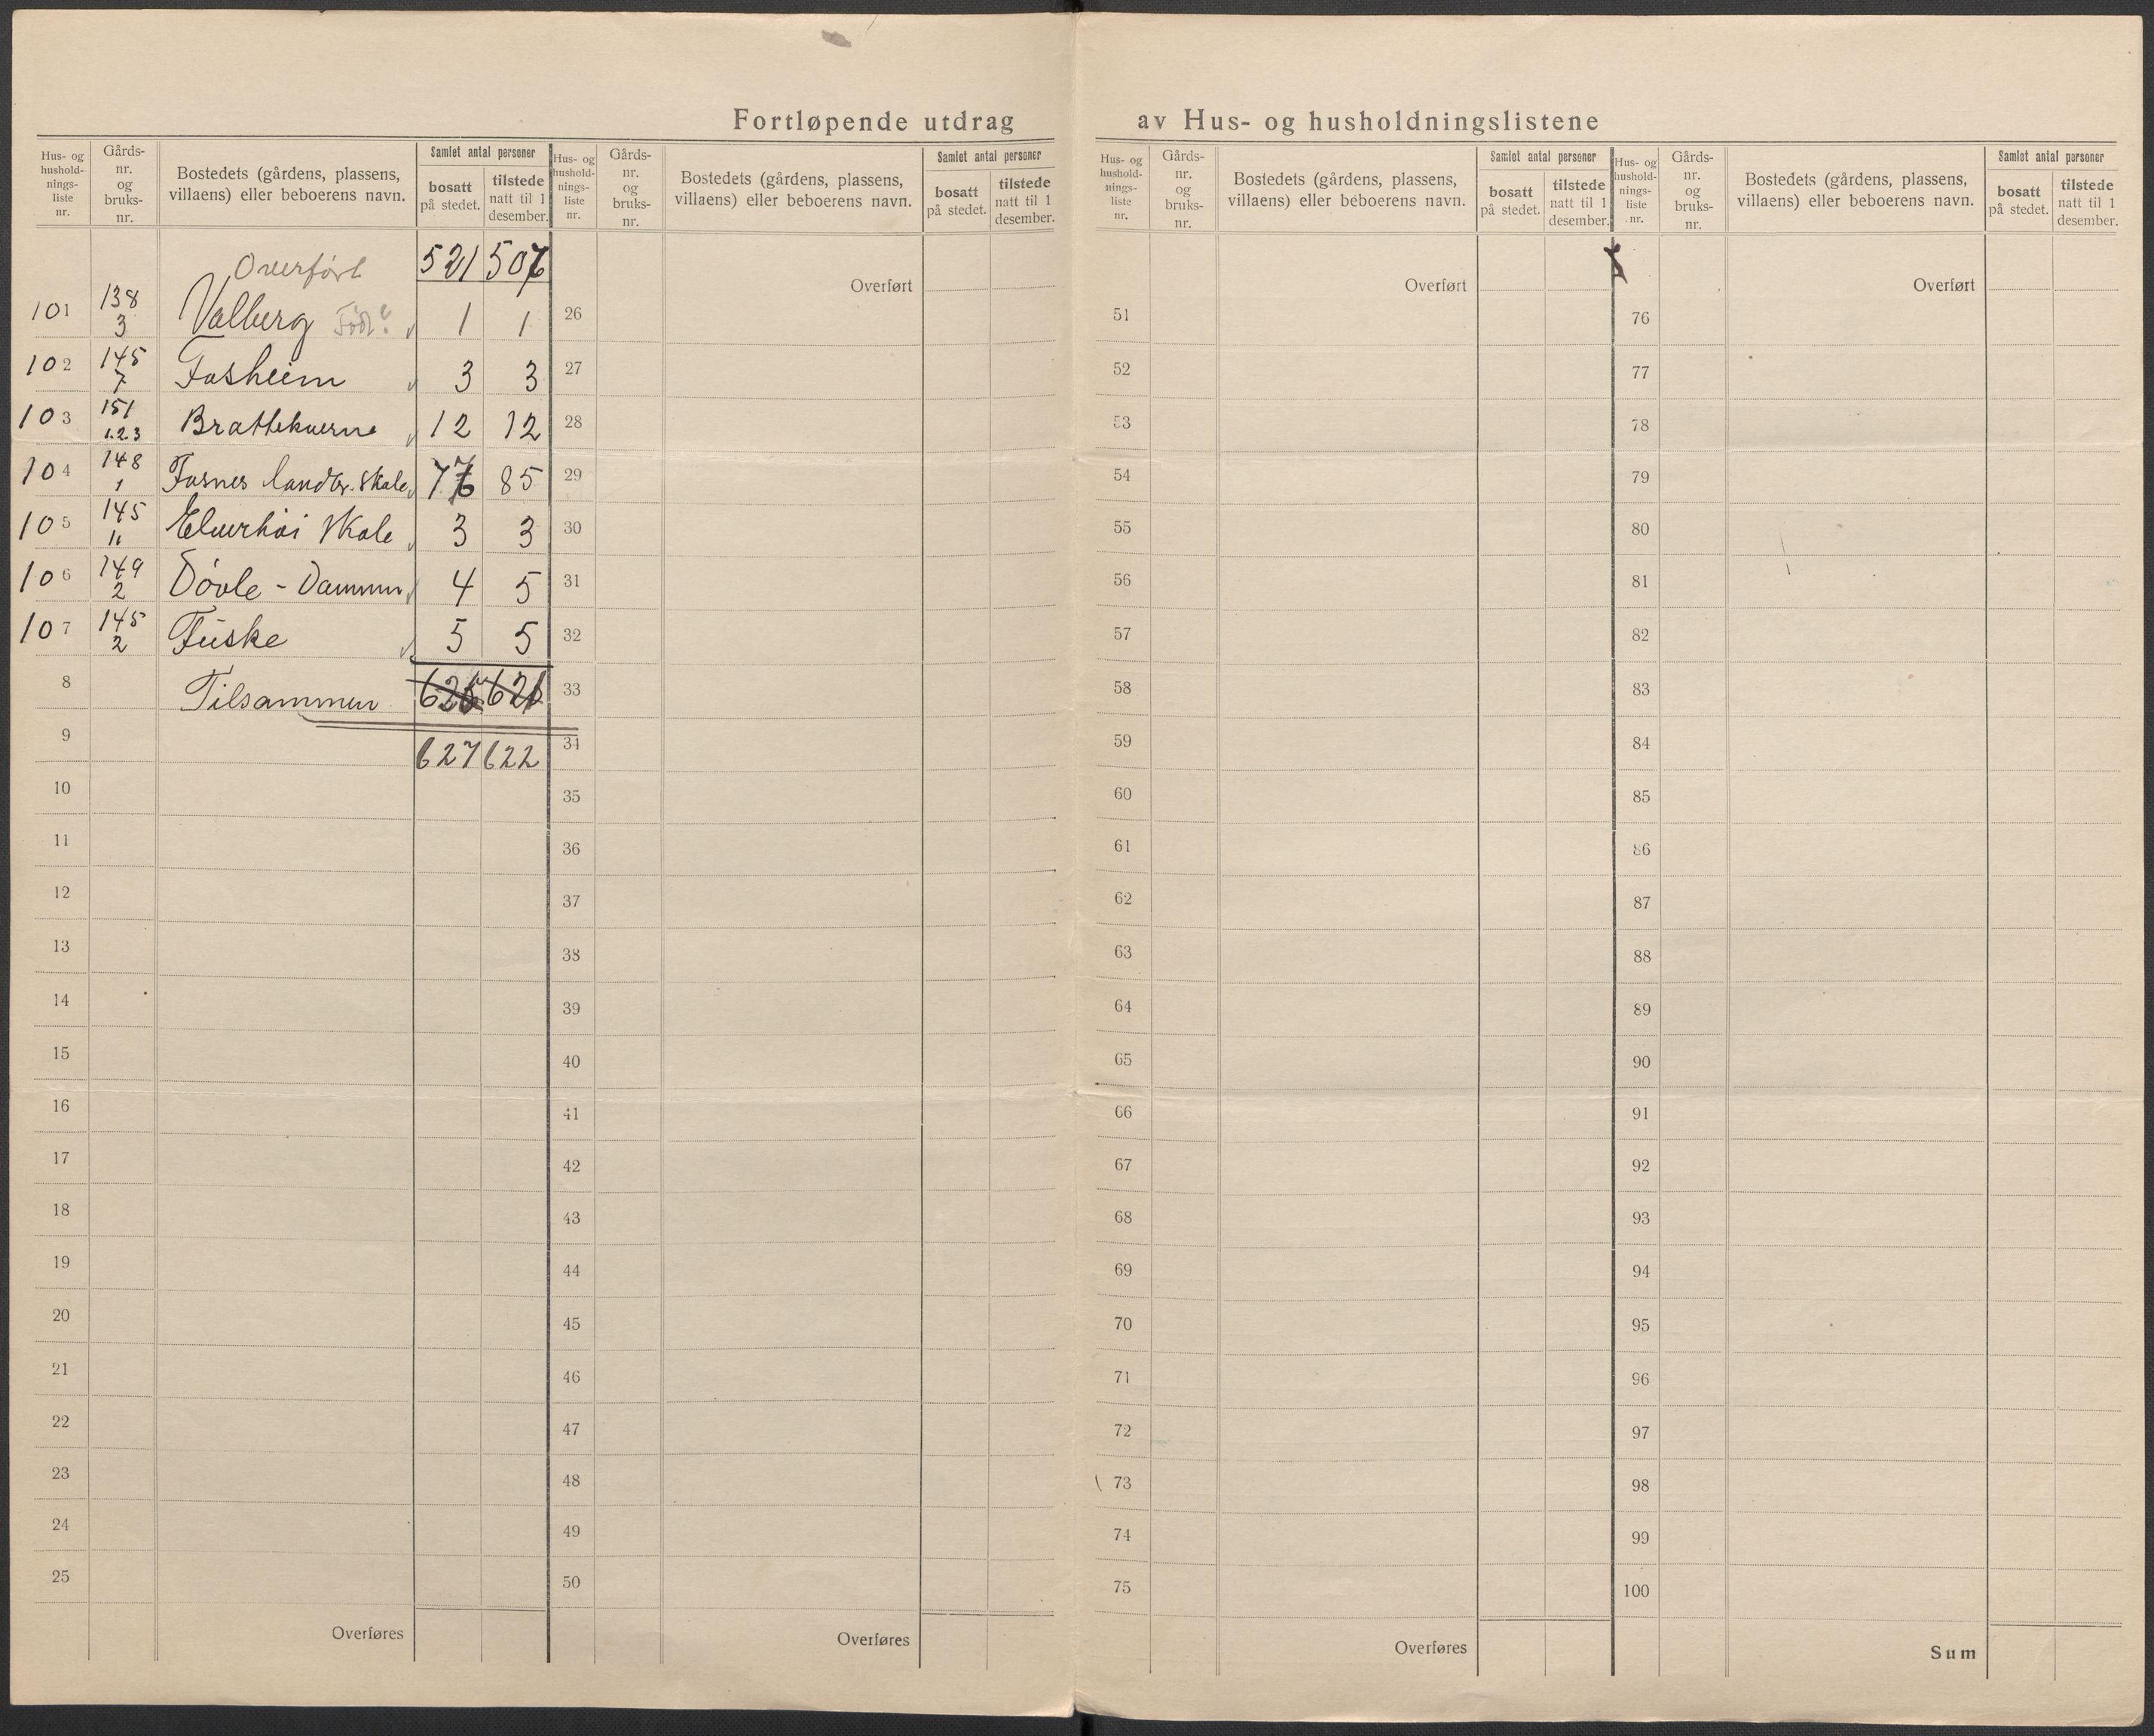 Fortløpende utdrag av Hus- og husholdningslistene
Hus- og hushold-nings-liste nr. Gårds-nr. og bruks-nr. Bostedets (gårdens, plassens, villaens) eller beboerens navn. Samlet antal personer bosatt på stedet. tilstede natt til 1 desember.
Overført 521 507
101 138 3 Valberg Født? 1 1
102 145 7 Fosheim 3 3
103 151 1.2.3 Brattekverne 12 12
104 148 1 Fosnes landbr. skole 77 85
105 145 11 Elverhöi Skole 3 3
106 149 2 Dövle - Dammen 4 5
107 145 2 Fuske 5 5
8 Tilsammen 626 621
9 627 622
10
11
12
13
14
15
16
17
18
19
20
21
22
23
24
25
Overføres
Hus- og hushold-nings-liste nr. Gårds-nr. og bruks-nr. Bostedets (gårdens, plassens, villaens) eller beboerens navn. Samlet antal personer bosatt på stedet. tilstede natt til 1 desember.
Overført
26
27
28
29
30
31
32
33
34
35
36
37
38
39
40
41
42
43
44
45
46
47
48
49
50
Overføres
Hus- og hushold-nings-liste nr. Gårds-nr. og bruks-nr. Bostedets (gårdens, plassens, villaens) eller beboerens navn. Samlet antal personer bosatt på stedet. tilstede natt til 1 desember.
Overført
51
52
53
54
55
56
57
58
59
60
61
62
63
64
65
66
67
68
69
70
71
72
73
74
75
Overføres
Hus- og hushold-nings-liste nr. Gårds-nr. og bruks-nr. Bostedets (gårdens, plassens, villaens) eller beboerens navn. Samlet antal personer bosatt på stedet. tilstede natt til 1 desember.
Overført
76
77
78
79
80
81
82
83
84
85
86
87
88
89
90
91
92
93
94
95
96
97
98
99
100
Sum